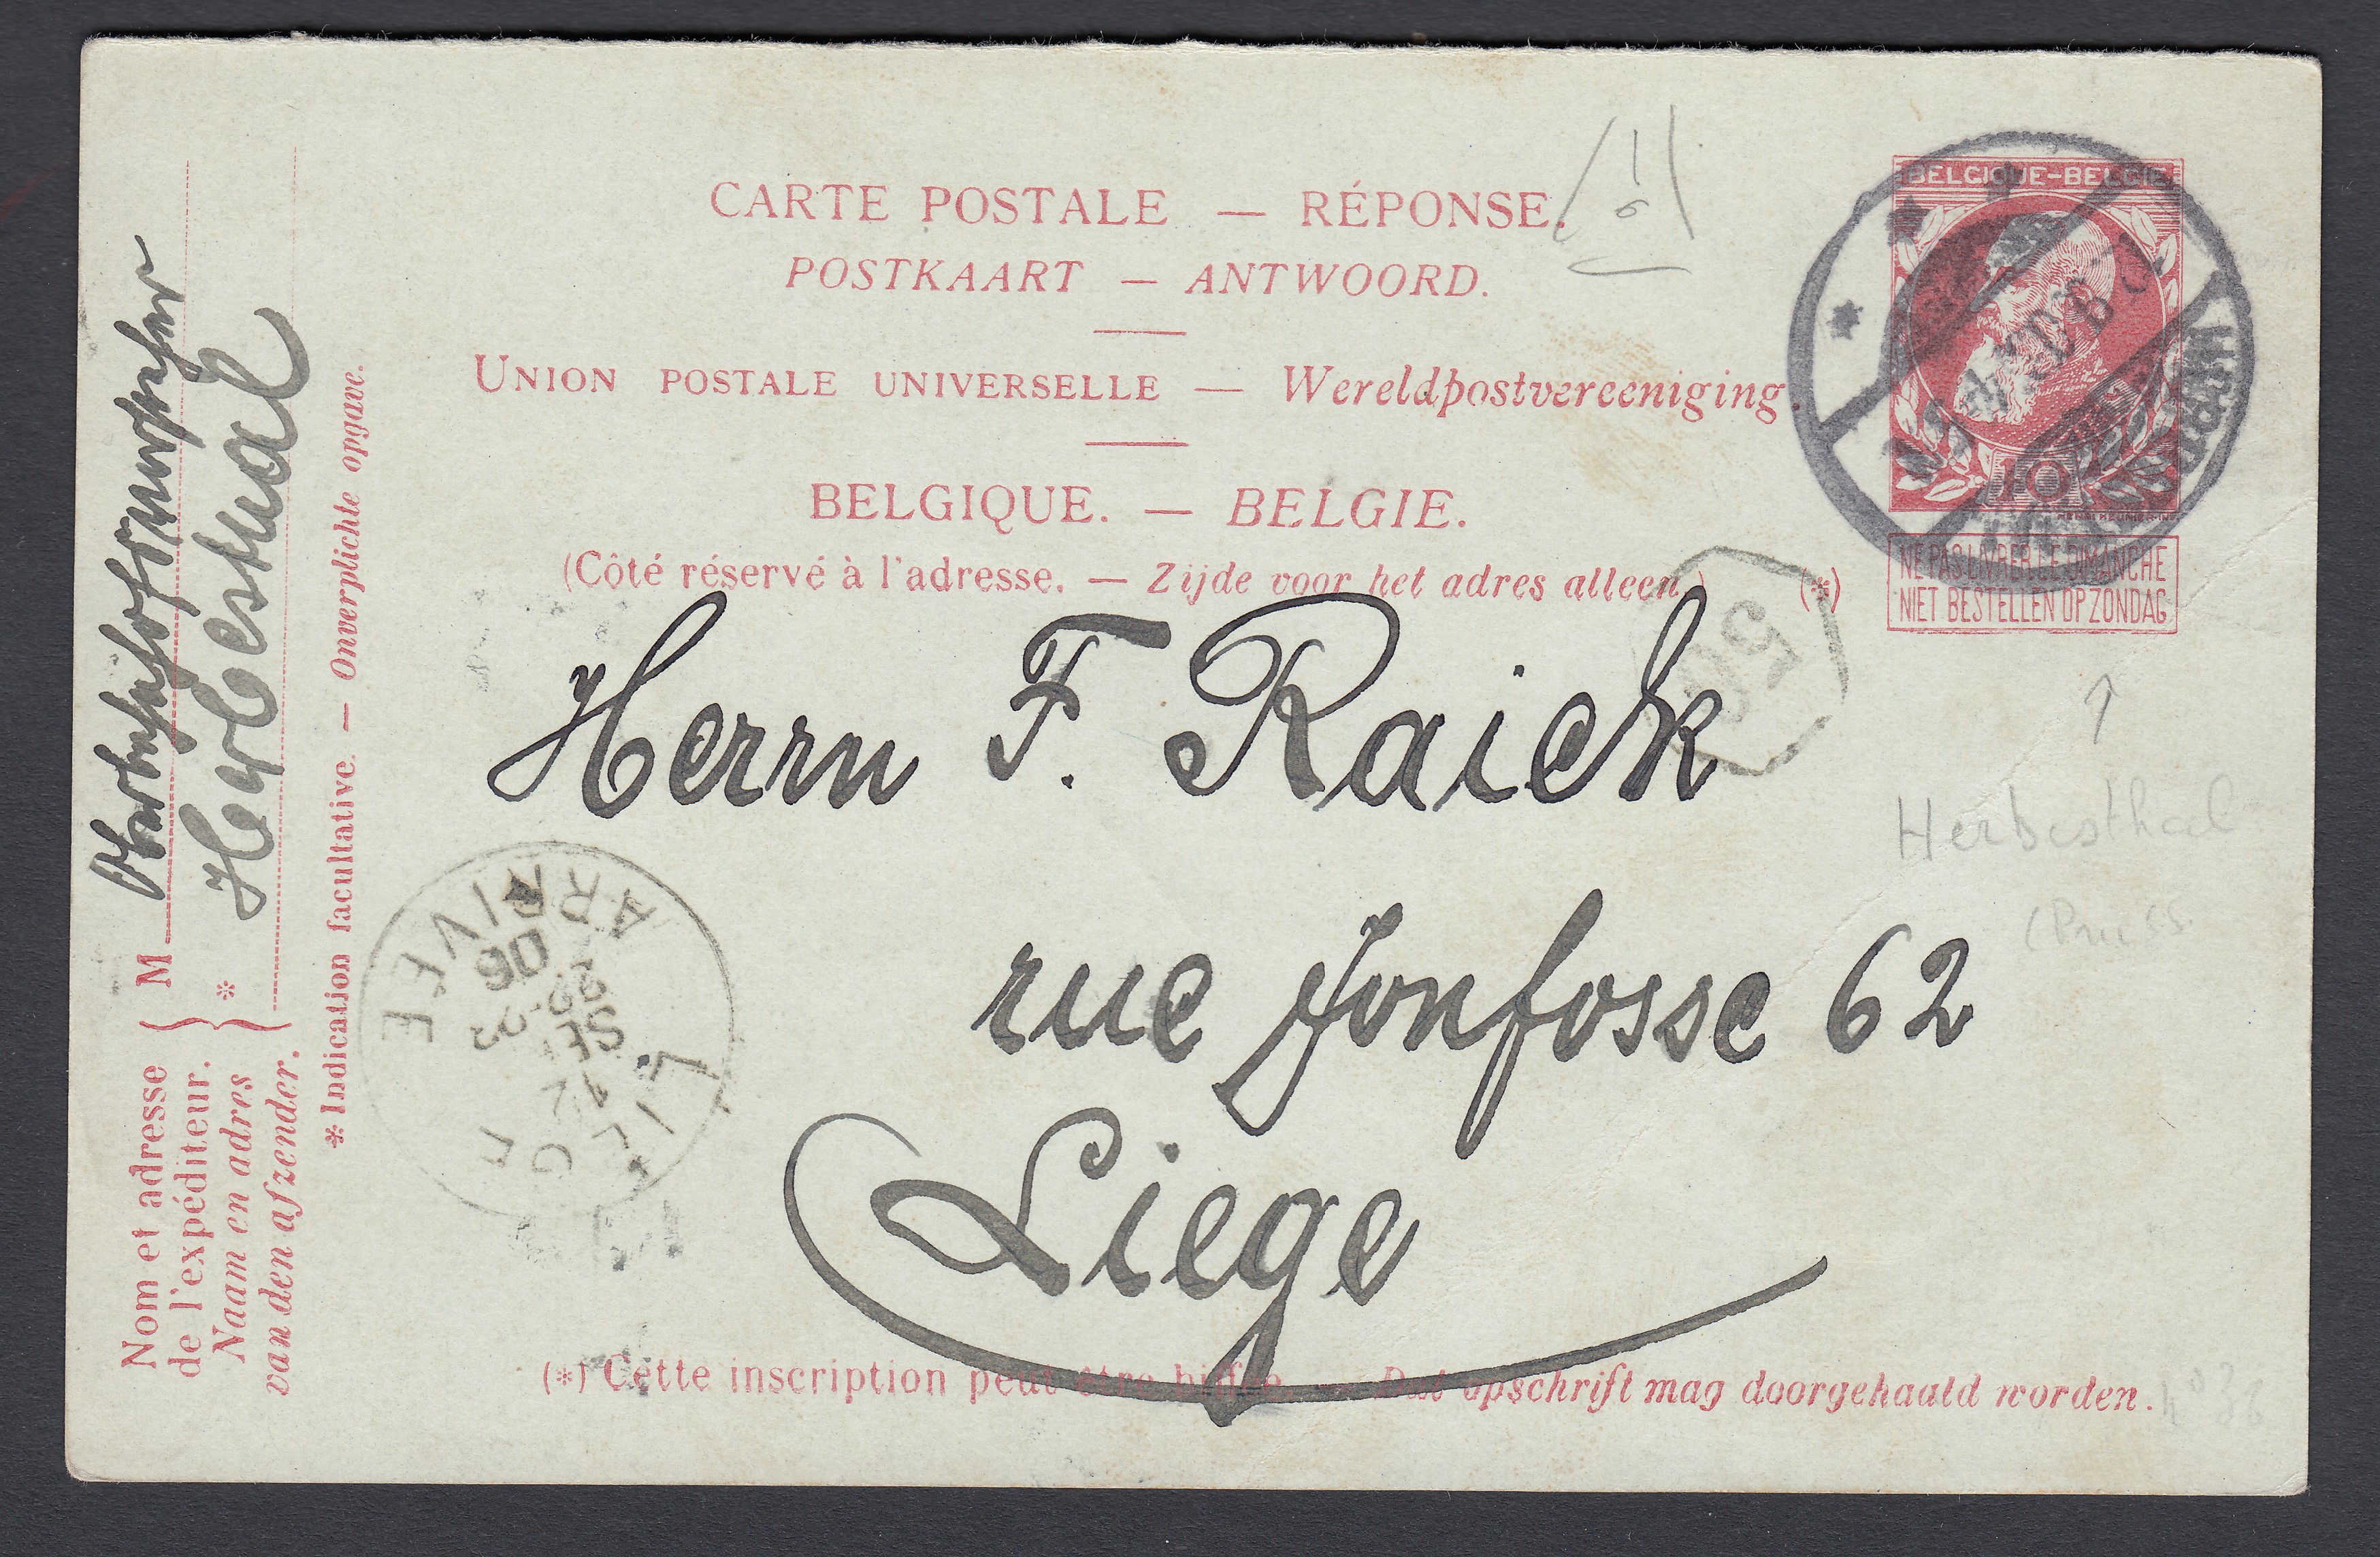 CARTE POSTALE — RÉPONSE.
POSTKAART — ANTWOORD.
UNION POSTALE UNIVERSELLE — Wereldpostvereeniging
BELGIQUE. — BELGIE.
(Côté réservé à l'adresse. — Zijde voor het adres alleen.) (*)
BELGIQUE-BELGIE
10
NE PAS LIVRER LE DIMANCHE
NIET BESTELLEN OP ZONDAG
Herrn F. Raick
rue Jonfosse 62
Liege
Herbesthal
(Preuss.
LIEGE
12
SE
22-23
06
ARRIVEE
(*) Cette inscription peut être biffée. — Dat opschrift mag doorgehaald worden.
Nom et adresse
de l'expéditeur.
Naam en adres
van den afzender.
M
*
Herbesthal
* Indication facultative. — Onverplichte opgave.